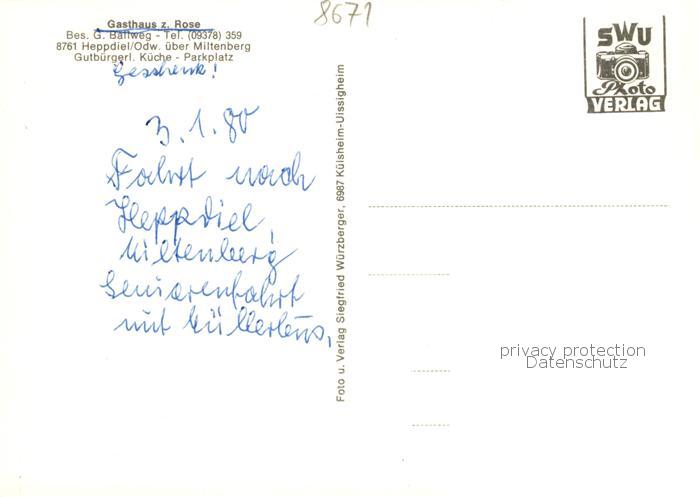 8671
Gasthaus z. Rose
Bes. G. Ballweg - Tel. (09378) 359
8761 Heppdiel/Odw. über Miltenberg
Gutbürgerl. Küche - Parkplatz
Geschenk!
3.1.80
Fahrt nach
Heppdiel,
Miltenberg
Seniorenfahrt
mit Müllerbus,
Foto u. Verlag Siegfried Würzberger, 6987 Külsheim-Uissigheim
SWU
Photo
VERLAG
privacy protection
Datenschutz